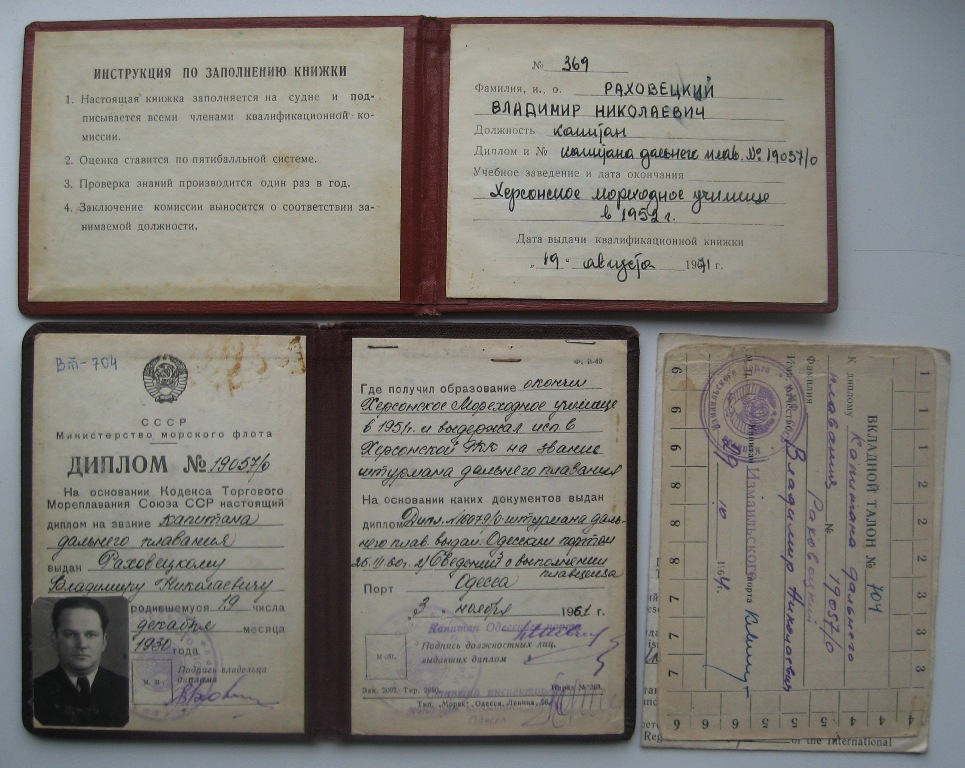 ИНСТРУКЦИЯ ПО ЗАПОЛНЕНИЮ КНИЖКИ
1. Настоящая книжка заполняется на судне и под-
писывается всеми членами квалификационной ко-
миссии.
2. Оценка ставится по пятибалльной системе.
3. Проверка знаний производится один раз в год.
4. Заключение комиссии выносится о соответствии за-
нимаемой должности.
№ 369
Фамилия, и., о. РАХОВЕЦКИЙ
ВЛАДИМИР НИКОЛАЕВИЧ
Должность капитан
Диплом и № капитана дальнего плав. № 19057/о
Учебное заведение и дата окончания
Херсонское мореходное училище
в 1952 г.
Дата выдачи квалификационной книжки
„19“ августа 1971 г.
ВТ-704
СССР
Министерство морского флота
ДИПЛОМ № 19057/о
На основании Кодекса Торгового
Мореплавания Союза ССР настоящий
диплом на звание капитана
дальнего плавания
выдан Раховецкому
Владимиру Николаевичу
родившемуся 19 числа
декабря месяца
1930 года
М. П.
Подпись владельца
диплома
Ф. В-40
Где получил образование окончил
Херсонское Мореходное училище
в 1951г. и выдержал исп. в
Херсонской ГКК на звание
штурмана дальнего плавания
На основании каких документов выдан
диплом Дипл. №16079/о штурмана даль-
него плав. выдан. Одесским портом
26.II 60г. 2) Сведений о выполнении
плавценза
Порт Одесса
„3“ ноября 1961 г.
Капитан Одесского порта
М. П.
Подпись должностных лиц,
выдавших диплом
Зак. 2092. Тир. 2000.
Тип. „Моряк“, Одесса, Ленина, 26.
Одесса
ВКЛАДНОЙ ТАЛОН № 704
К диплому капитана дальнего
плавания № 19057/о
Фамилия Раховецкий
Имя, отчество Владимир Николаевич
М. П. Капитан Измаильского порта
10 1964 г.
1 1 1 2 2 2 3 3 3 4 4 4 5 5 5 6 6 6 7 7 7 8 8 8 9 9 9
of the International